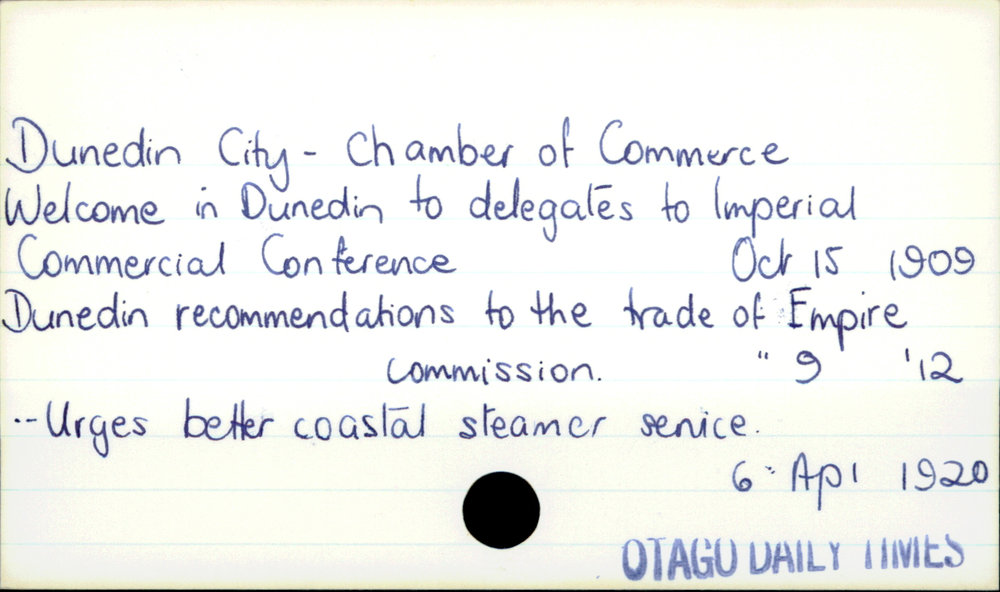 Dunedin City - Chamber of Commerce
Welcome in Dunedin to delegates to Imperial
Commercial Conference Oct 15 1909
Dunedin recommendations to the trade of Empire
Commission. " 9 '12
--Urges better coastal steamer service.
6 Apl 1920
OTAGO DAILY TIMES